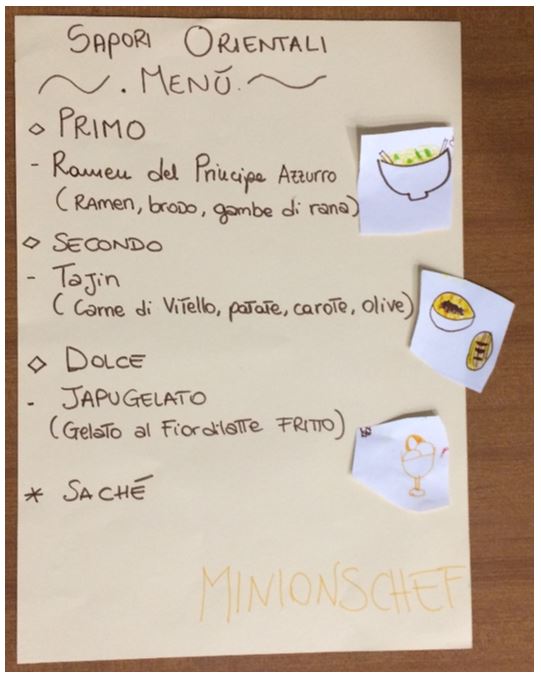 SAPORI ORIENTALI
. MENÚ.
◇ PRIMO
- Ramen del Principe AZZURRO
(RAMEN, brodo, gambe di rana)
◇ SECONDO
- Tajin
(Carne di Vitello, patate, carote, olive)
◇ DOLCE
- JAPUGELATO
(Gelato al Fiordilatte FRITTO)
* SACHÉ
MINIONSCHEF